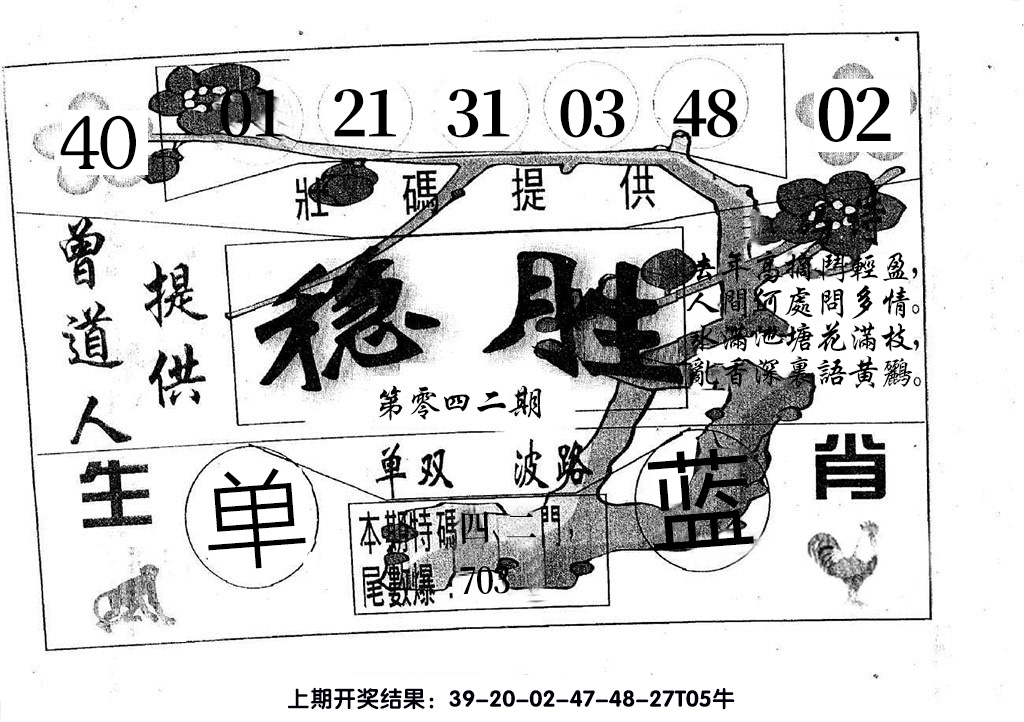 40 01 21 31 03 48 02
壯碼提供
曾道人
提供
稳胜
第零四二期
去年高摘鬥輕盈，
人間何處問多情。
水滿池塘花滿枝，
亂香深裏語黃鸝。
单双 波路
生 肖
单 蓝
本期特碼四、二門，
尾數爆：703
上期开奖结果：39-20-02-47-48-27T05牛